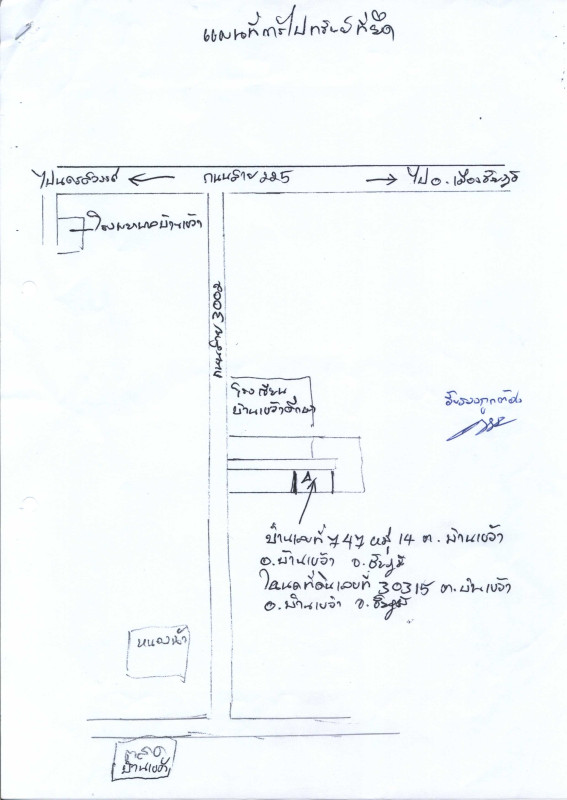 แผนที่การไปทรัพย์ที่ยึด
ไปนครสวรรค์ ถนนสาย 225 ไป อ.เมืองชัยภูมิ
โรงพยาบาลบ้านเขว้า
ถนนสาย 3002
โรงเรียน
บ้านเขว้าศึกษา
รับรองถูกต้อง
บ้านเลขที่ 747 หมู่ 14 ต.บ้านเขว้า
อ.บ้านเขว้า จ.ชัยภูมิ
โฉนดที่ดินเลขที่ 30315 ต.บ้านเขว้า
อ.บ้านเขว้า จ.ชัยภูมิ
หนองน้ำ
ตลาด
บ้านเขว้า